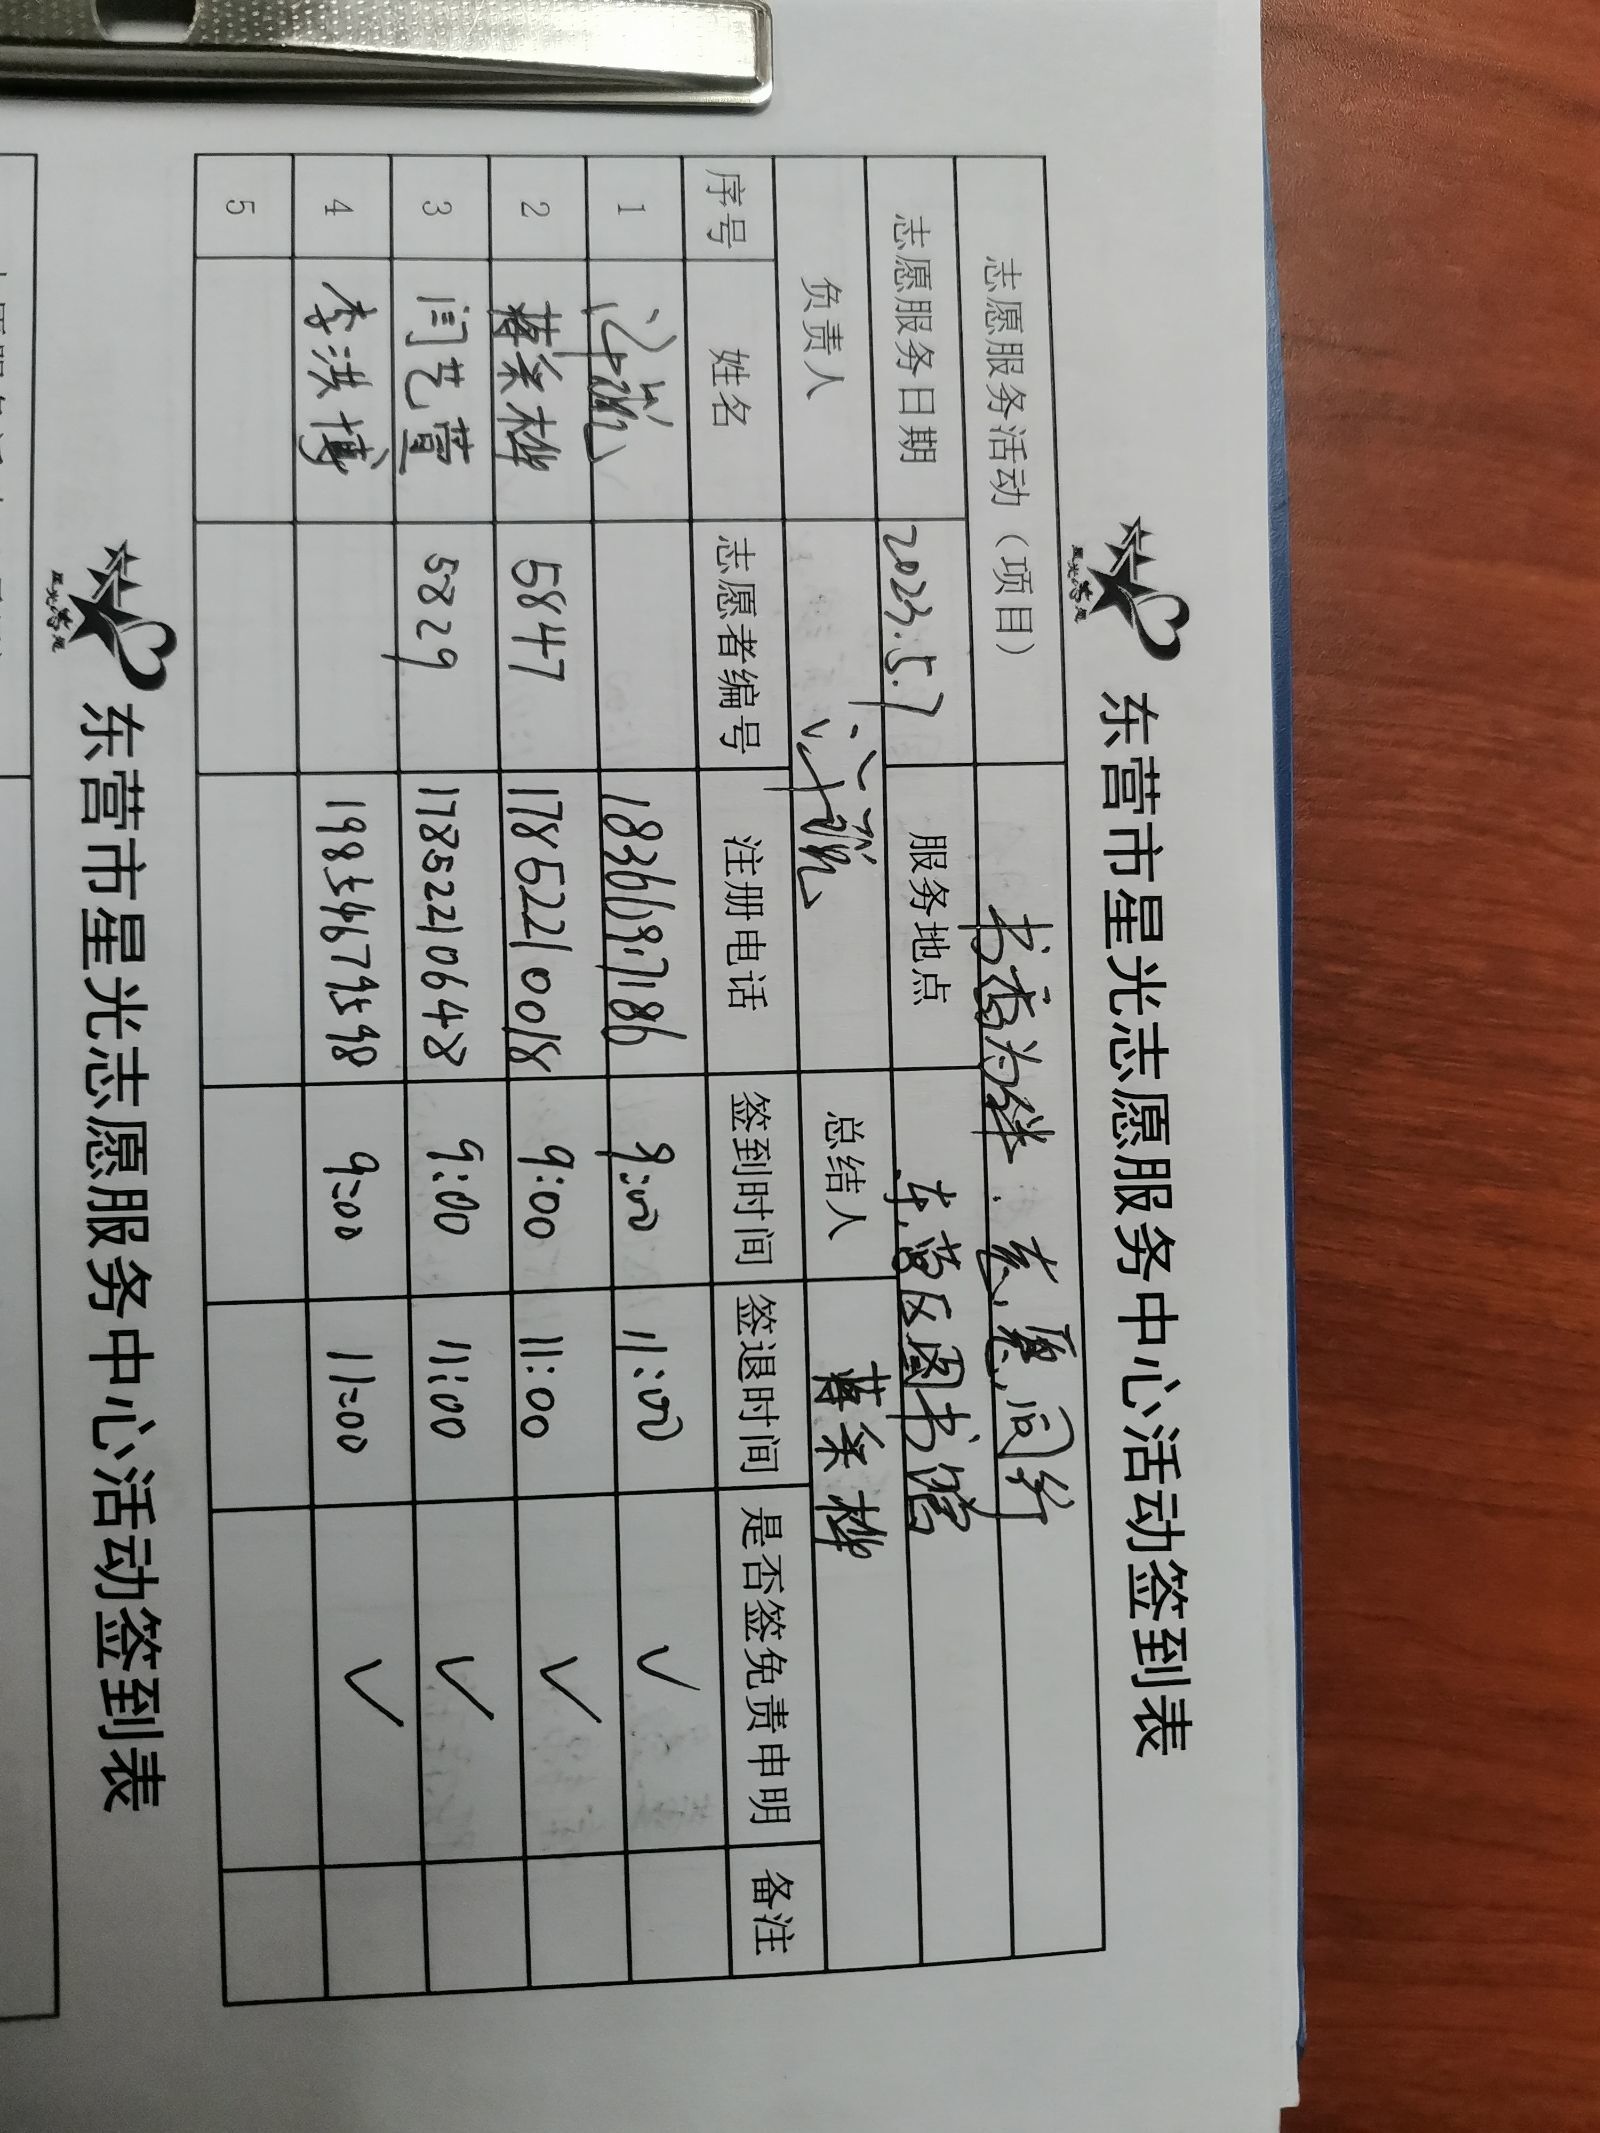 东营市星光志愿服务中心活动签到表
志愿服务活动（项目） 书香为伴 . 志愿同行
志愿服务日期 2023.5.7 服务地点 东营区图书馆
负责人 总结人 蒋采桦
序号 姓名 志愿者编号 注册电话 签到时间 签退时间 是否签免责申明 备注
1 18366697186 9:00 11:00 ✓
2 蒋采桦 5847 17852210018 9:00 11:00 ✓
3 闫艺萱 5829 17852210648 9:00 11:00 ✓
4 李洪博 9:00 11:00 ✓
5
东营市星光志愿服务中心活动签到表